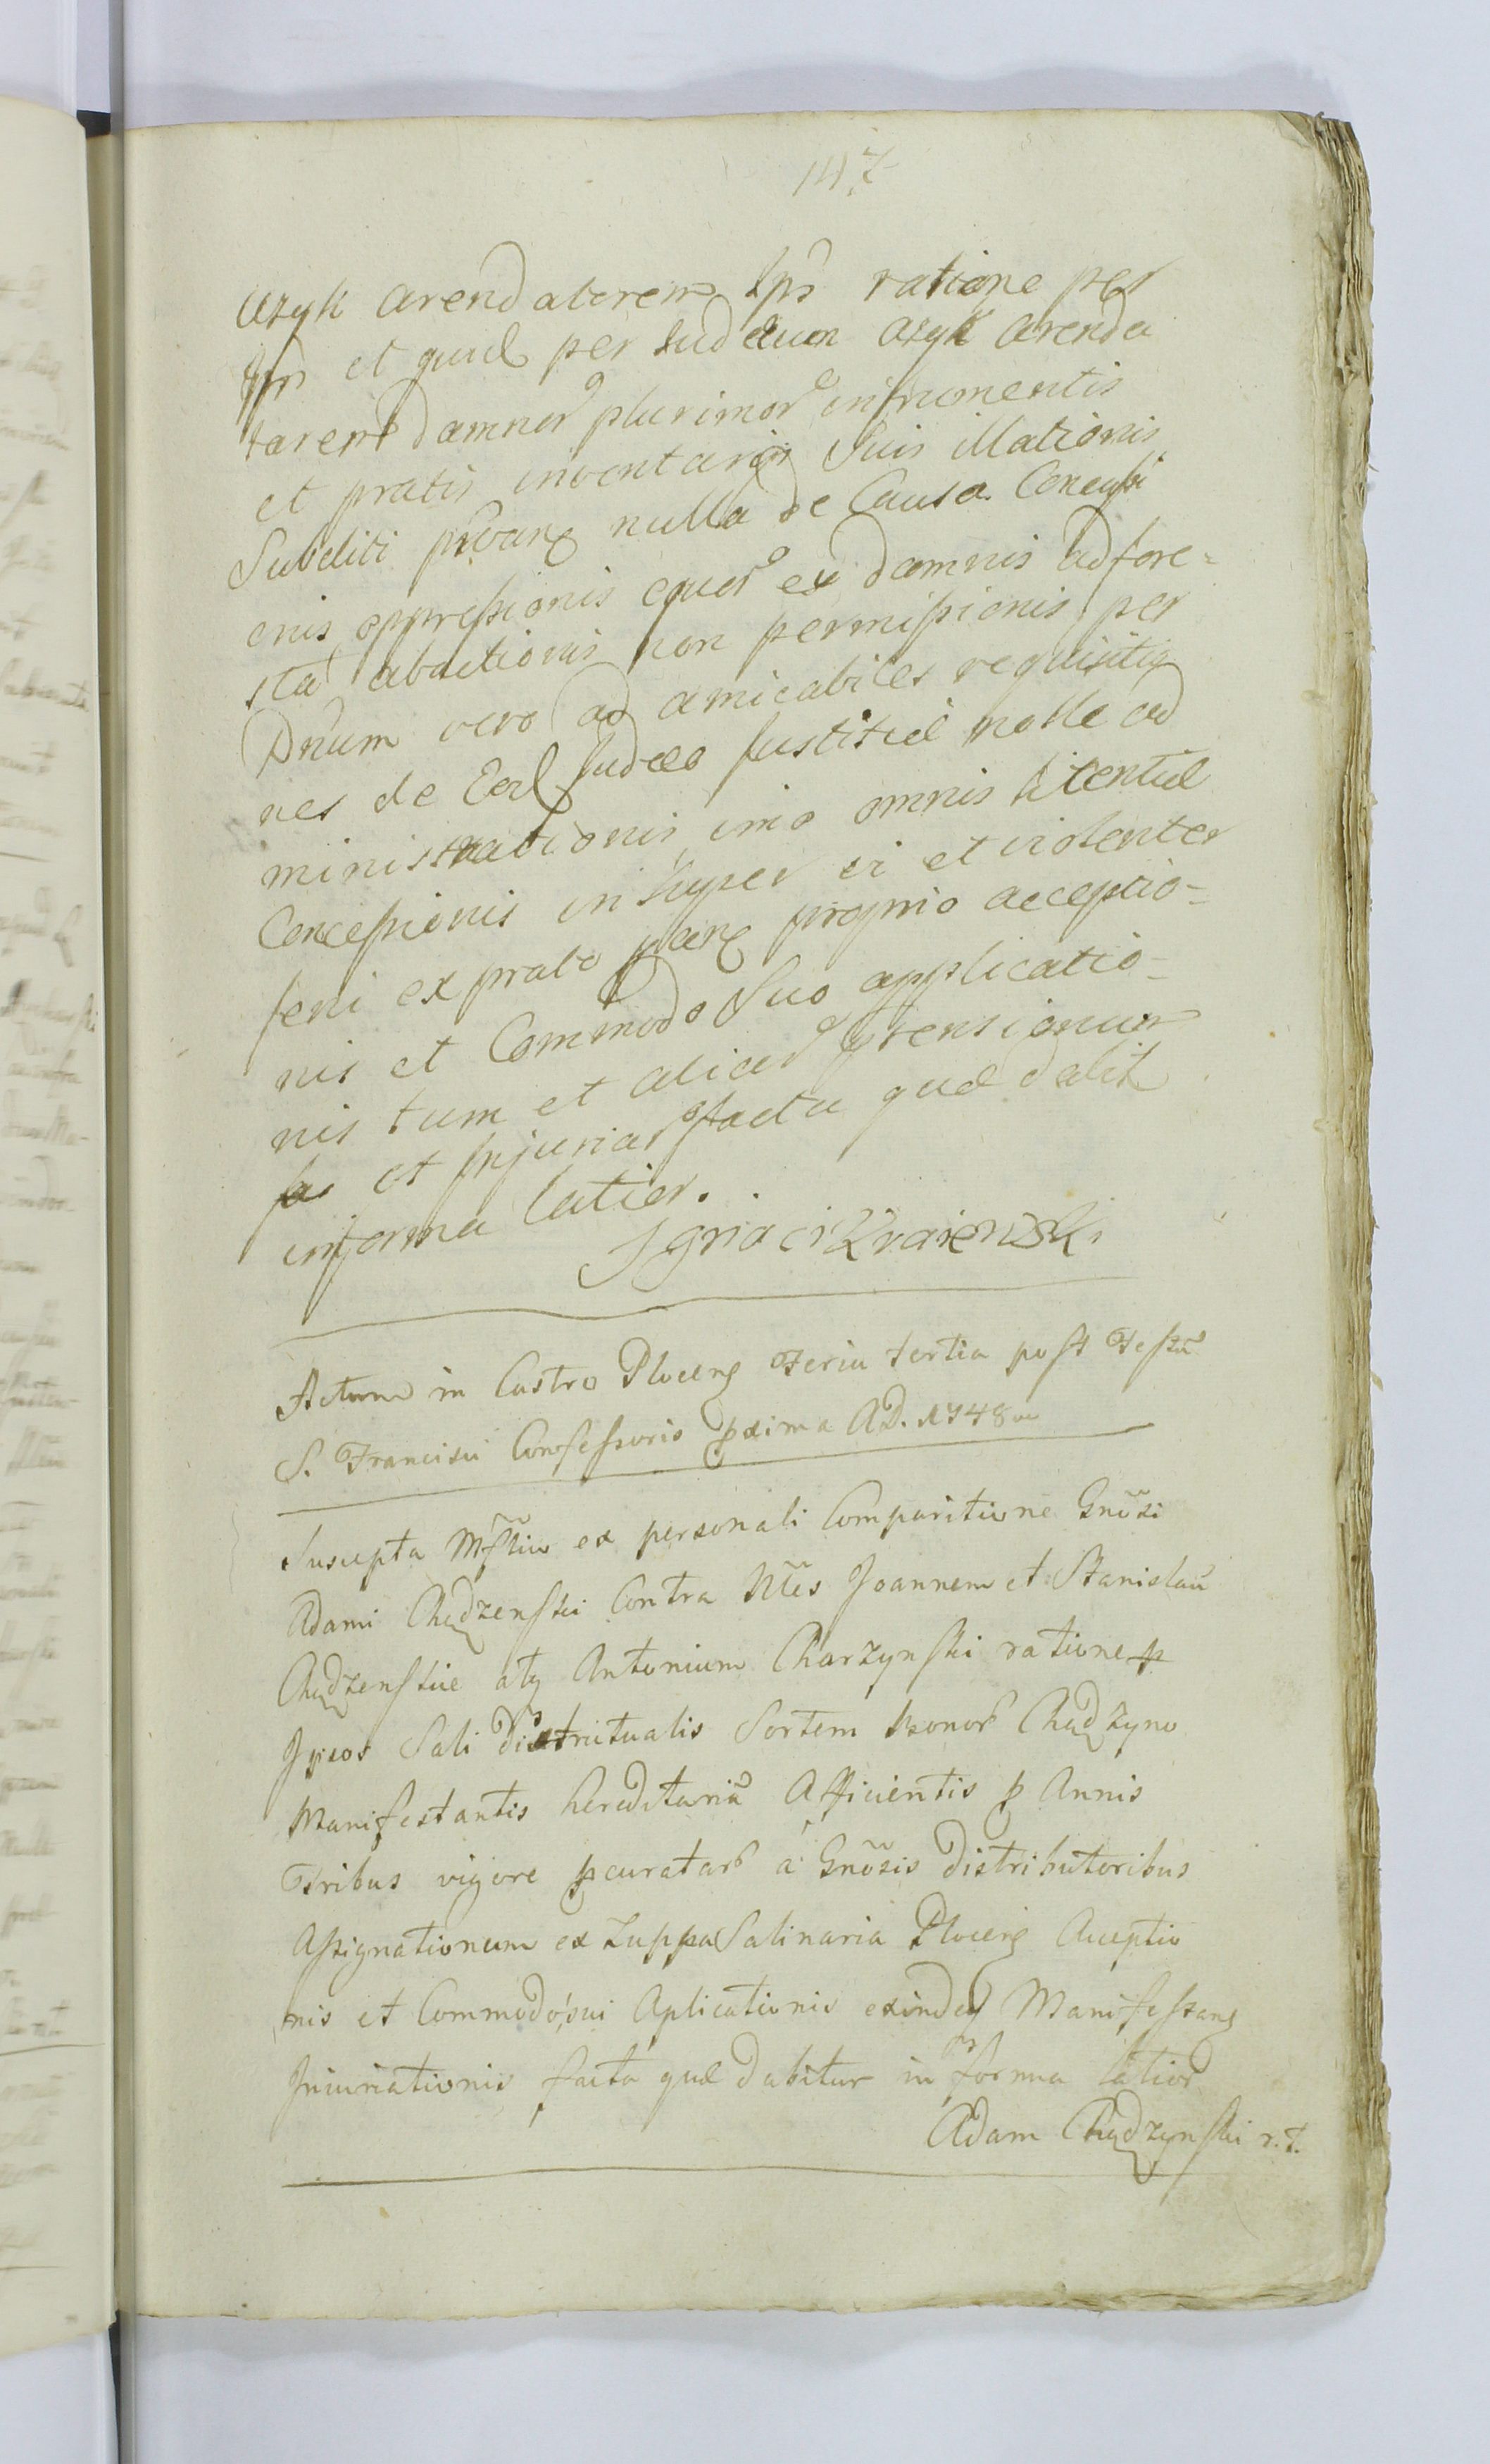 147
Azyk arendatorem Ips ratione per
Ips et quid per Judæum Azyk Arenda
tarem damnor plurimor in frumentis
et pratis inventarijs Suis illationis
Subditi nulla de Causa Concussi
onis oppressionis equor ex damnis ad fore=
sta abactionis non permissionis per
Dnum vero ad amicabiles requisitio
nes de Eod Judæo Justitiæ nolle ad
ministrationis imo omnis licentiæ
Concessionis insuper vi et violenter
feni ex prato proprio acceptio=
nis et Commodo Suo applicatio=
nis tum et aliar prensionum
et Injuriar facta quæ dabit
in forma latior.
Ignaci Kraiewski
Actum in Castro Plocens Feria tertia post Festū
S. Francisci Confessoris pxima AD. 1748vo
Suscepta Mfftio ex personali Comparitione Gnosi
Adami Chądzenski Contra Nles Joannem et Stanislaū
Chądzenskie atq Antonium Charzynski ratione p
Ipsos Sali districtualis Sortem bonor Chądzyno
Manifestantis hereditariā Afficientis p Annis
Tribus vigore pcuratar á Gnosis Distributoribus
Assignationum ex Zuppa Salinaria Plocens Acceptio
nis et Commodo sui Aplicationis exindeq Manifestans
Iniuriationis facta quæ dabitur in forma latior
Adam Chądzynski r. t.